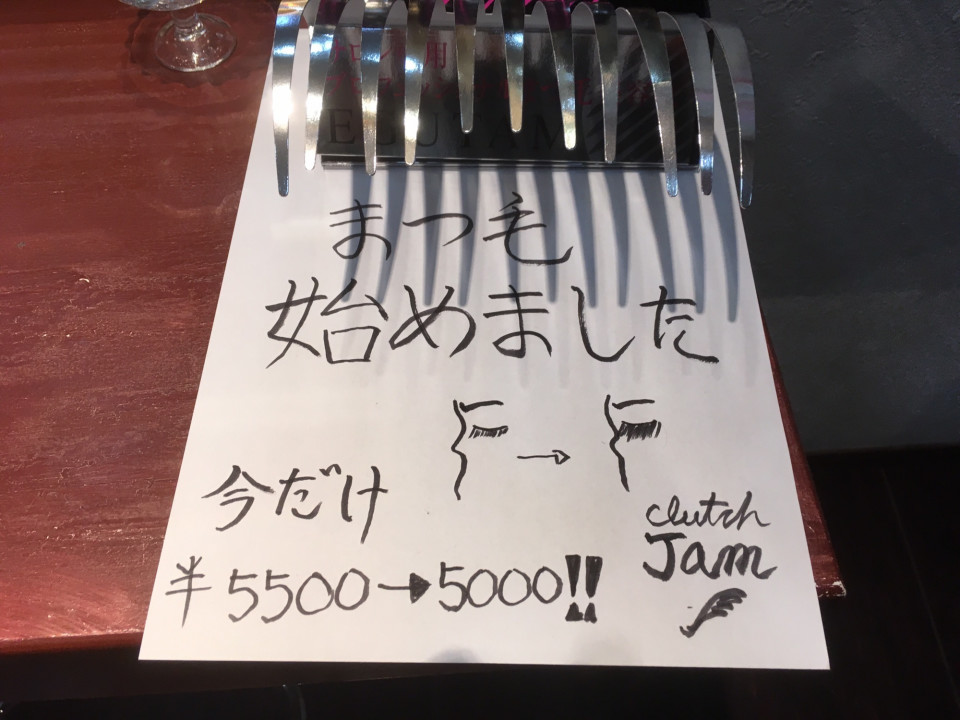 EGUTAM
まつ毛
始めました
今だけ
¥5500→5000!!
clutch
Jam